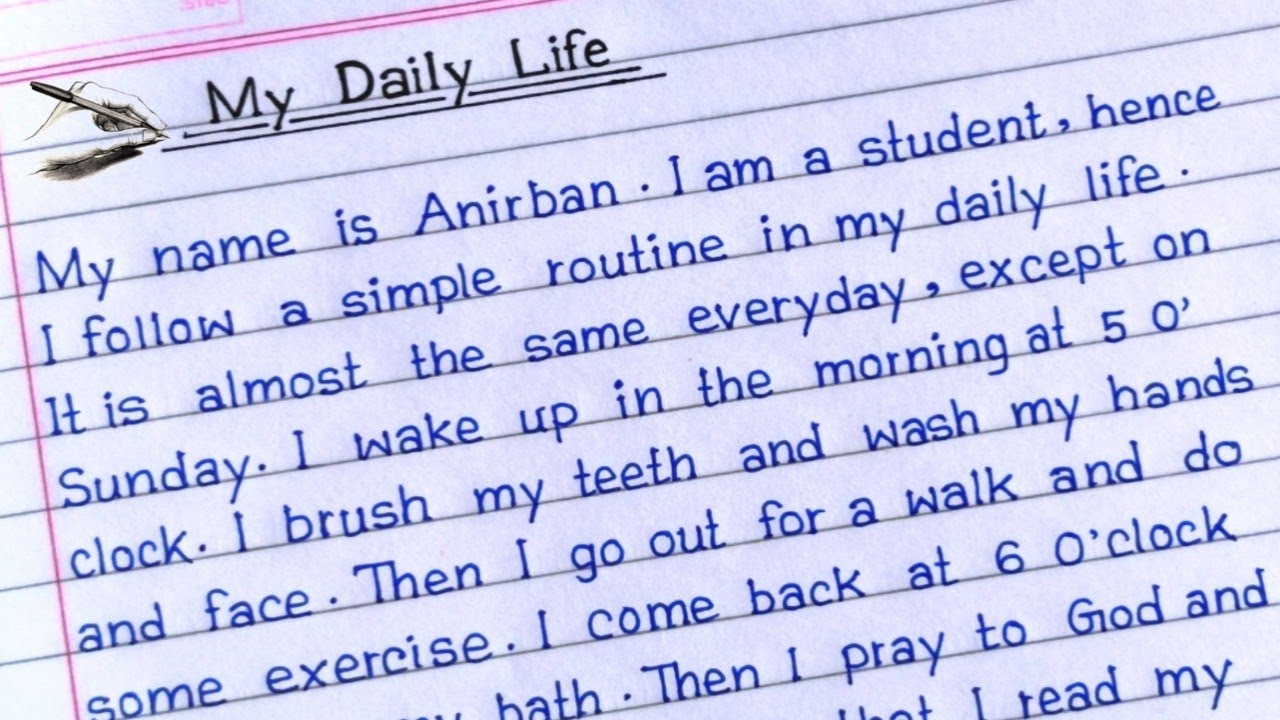 My Daily Life
My name is Anirban. I am a student, hence
I follow a simple routine in my daily life.
It is almost the same everyday, except on
Sunday. I wake up in the morning at 5 O'
clock. I brush my teeth and wash my hands
and face. Then I go out for a walk and do
some exercise. I come back at 6 O'clock
bath. Then I pray to God and
I read my